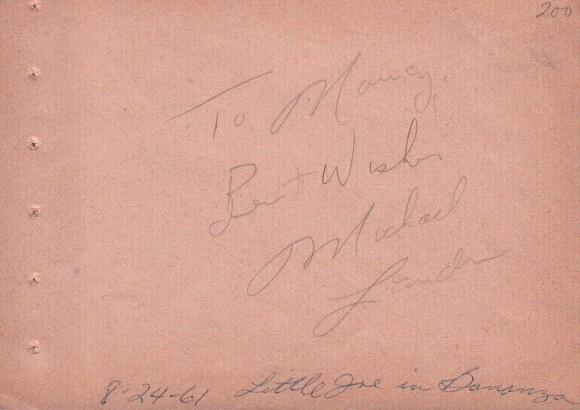 200
To Nancy,
Best Wishes
Michael
Landon
8-24-61 Little Joe in Bonanza